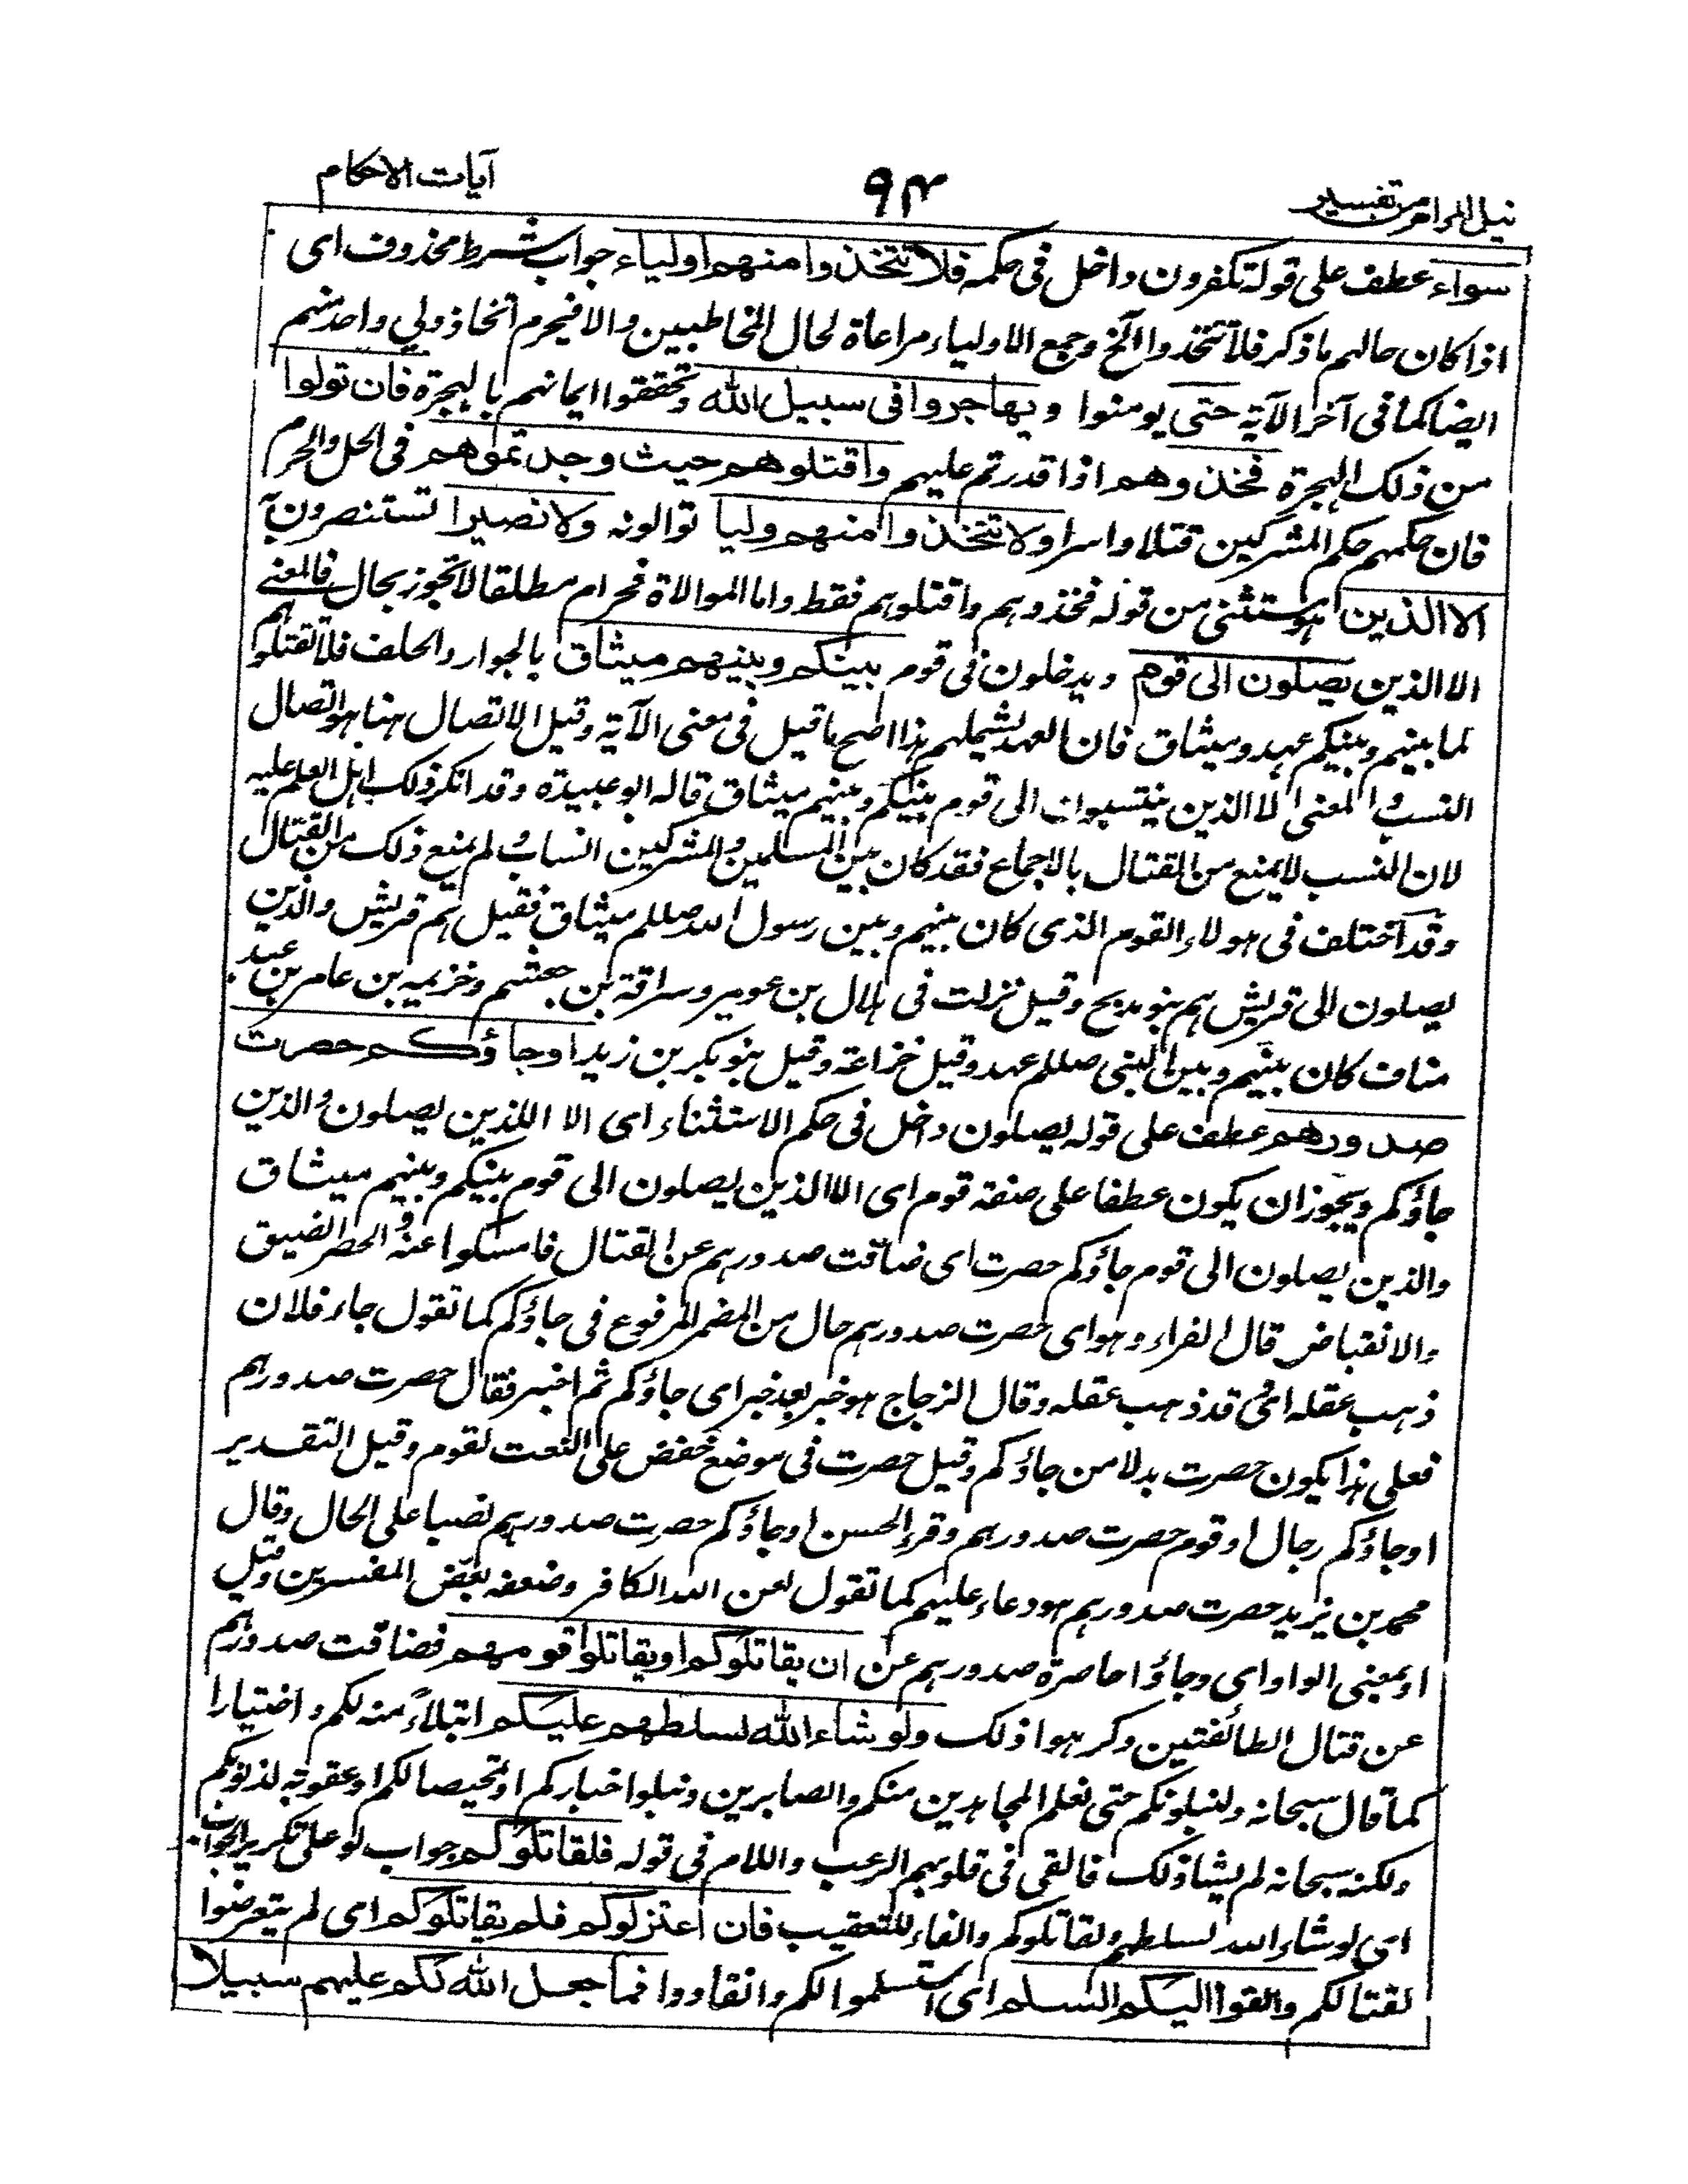 نيل المرام من تفسير
٩٤
آيات الاحكام
سواء عطف على قوله تكفرون داخل فى حكمه فلا تتخذوا منهم اولياء جواب شرط محذوف اى
اذا كان حالهم ما ذكر فلا تتخذوا الخ وجمع الاولياء مراعاة لحال المخاطبين والا فيحرم اتخاذ ولي واحد منهم
ايضا كما فى آخر الآية حتى يومنوا ويهاجروا فى سبيل الله وتحققوا ايمانهم بالهجرة فان تولوا
من ذلك الهجرة فخذوهم اذا قدرتم عليهم واقتلوهم حيث وجدتموهم فى الحل والحرم
فان حكمهم حكم المشركين قتلا واسرا ولا تتخذوا منهم وليا توالونه ولا نصيرا تستنصرون به
الا الذين هو مستثنى من قوله فخذوهم واقتلوهم فقط واما الموالاة فحرام مطلقا لا تجوز بحال فالمعنى
الا الذين يصلون الى قوم ويدخلون فى قوم بينكم وبينهم ميثاق بالجوار والحلف فلا تقتلوهم
لما بينهم وبينكم عهد وميثاق فان العهد يشملهم هذا اصح ما قيل فى معنى الآية وقيل الاتصال هنا هو اتصال
النسب والمعنى الا الذين ينتسبون الى قوم بينكم وبينهم ميثاق قاله ابو عبيدة وقد انكر ذلك اهل العلم عليه
لان النسب لا يمنع من القتال بالاجماع فقد كان بين المسلمين والمشركين انساب ولم يمنع ذلك من القتال
وقد اختلف فى هولاء القوم الذى كان بينهم وبين رسول الله صللم ميثاق فقيل هم قريش والذين
يصلون الى قريش هم بنو مدلج وقيل نزلت فى هلال بن عويمر وسراقة بن جعشم وخزيمه بن عامر بن عبد
مناف كان بينهم وبين النبى صللم عهد وقيل خزاعة وقيل بنو بكر بن زيد او جاؤكم حصرت
صدورهم عطف على قوله يصلون داخل فى حكم الاستثناء اى الا اللذين يصلون والذين
جاؤكم ويجوز ان يكون عطفا على صفة قوم اى الا الذين يصلون الى قوم بينكم وبينهم ميثاق
والذين يصلون الى قوم جاؤكم حصرت اى ضاقت صدورهم عن القتال فامسكوا عنه والحصر الضيق
والانقباض قال الفراء وهو اى حصرت صدورهم حال من المضمر المرفوع فى جاؤكم كما تقول جاء فلان
ذهب عقله اى قد ذهب عقله وقال الزجاج هو خبر بعد خبر اى جاؤكم ثم اخبر فقال حصرت صدورهم
فعلى هذا يكون حصرت بدلا من جاؤكم وقيل حصرت فى موضع خفض على النعت لقوم وقيل التقدير
او جاؤكم رجال او قوم حصرت صدورهم وقرء الحسن او جاؤكم حصرت صدورهم نصبا على الحال وقال
محمد بن يزيد حصرت صدورهم هو دعاء عليهم كما تقول لعن الله الكافر وضعفه بعض المفسرين وقيل
او بمعنى الواو اى وجاؤا حاصرة صدورهم عن ان يقاتلوكم او يقاتلوا قومهم فضاقت صدورهم
عن قتال الطائفتين وكرهوا ذلك ولو شاء الله لسلطهم عليكم ابتلاءً منه لكم واختيارا
كما قال سبحانه ولنبلونكم حتى نعلم المجاهدين منكم والصابرين ونبلوا اخباركم او تمحيصا لكم او عقوبة لذنوبكم
ولكنه سبحانه لم يشا ذلك فالقى فى قلوبهم الرعب واللام فى قوله فلقاتلوكم جواب لو على تكرير الجواب
اى لو شاء الله لسلطهم ولقاتلوكم والفاء للتعقيب فان اعتزلوكم فلم يقاتلوكم اى لم يتعرضوا
لقتالكم والقوا اليكم السلم اى استسلموا لكم وانقادوا فما جعل الله لكم عليهم سبيلا